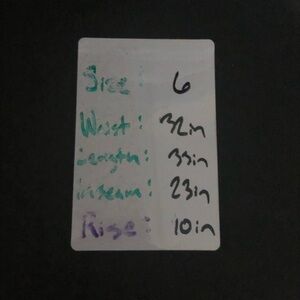 Size: 6
Waist: 32in
Length: 33in
inseam: 23in
Rise: 10in